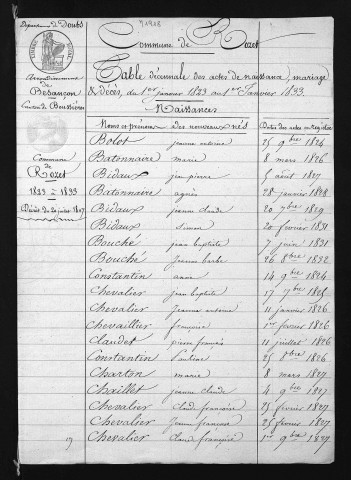 Département du Doubs
Commune de Rozet
Arrondissement
de
Besançon
Canton de Boussières
Table décennale des actes de naissance, mariage
& décès, du 1er janvier 1823 au 1er Janvier 1833.
Naissances
Commune
de
Rozet
1823 à 1833
Décret du 20 juillet 1807
Noms et prénoms des nouveaux nés Dates des actes au registre
Bolot jeanne 25 9bre 1824
Batonnaire marie 8 mars 1826
Bidaux jean pierre 5 avril 1827
Batonnaire agnès 28 janvier 1828
Bidaux jeanne claude 20 7bre 1829
Bidaux Simon 20 février 1831
Bouché jean baptiste 7 juin 1831
Bouché Jeanne barbe 26 8bre 1832
Constantin anne 14 9bre 1824
Chevalier jean baptiste 17 7bre 1825
Chevalier Jeanne antoine 11 janvier 1826
Chevaillier françoise 1er février 1826
Claudet pierre françois 11 juillet 1826
Constantin Pauline 25 1826
Charton marie 8 mars 1827
Chaillet jeanne claude 4 9bre 1827
Chevalier Claude françoise 25 février 1827
Chevalier Jeanne françoise 25 février 1827
Chevalier Claude françoise 1er 9bre 1827